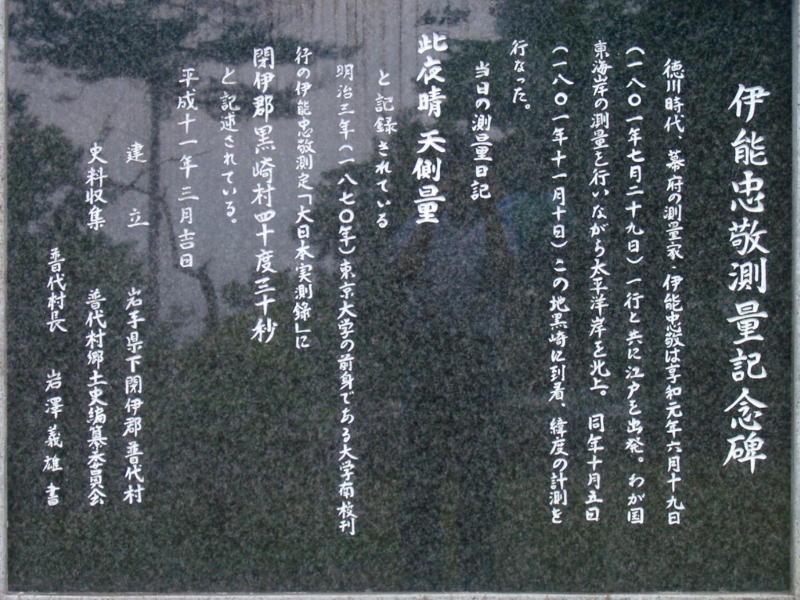 伊能忠敬測量記念碑
徳川時代、幕府の測量家・伊能忠敬は享和元年六月十九日
(一八〇一年七月二十九日)一行と共に江戸を出発。わが国
東海岸の測量を行いながら太平洋岸を北上。同年十月五日
(一八〇一年十一月十日)この地黒崎に到着、緯度の計測を
行なった。
当日の測量日記
此夜晴 天側量
と記録されている
明治三年(一八七〇年)東京大学の前身である大学南校刊
行の伊能忠敬測定「大日本実測録」に
閉伊郡黒崎村四十度三十秒
と記述されている。
平成十一年三月吉日
建立 岩手県下閉伊郡普代村
史料収集 普代村郷土史編纂委員会
普代村長 岩澤義雄書